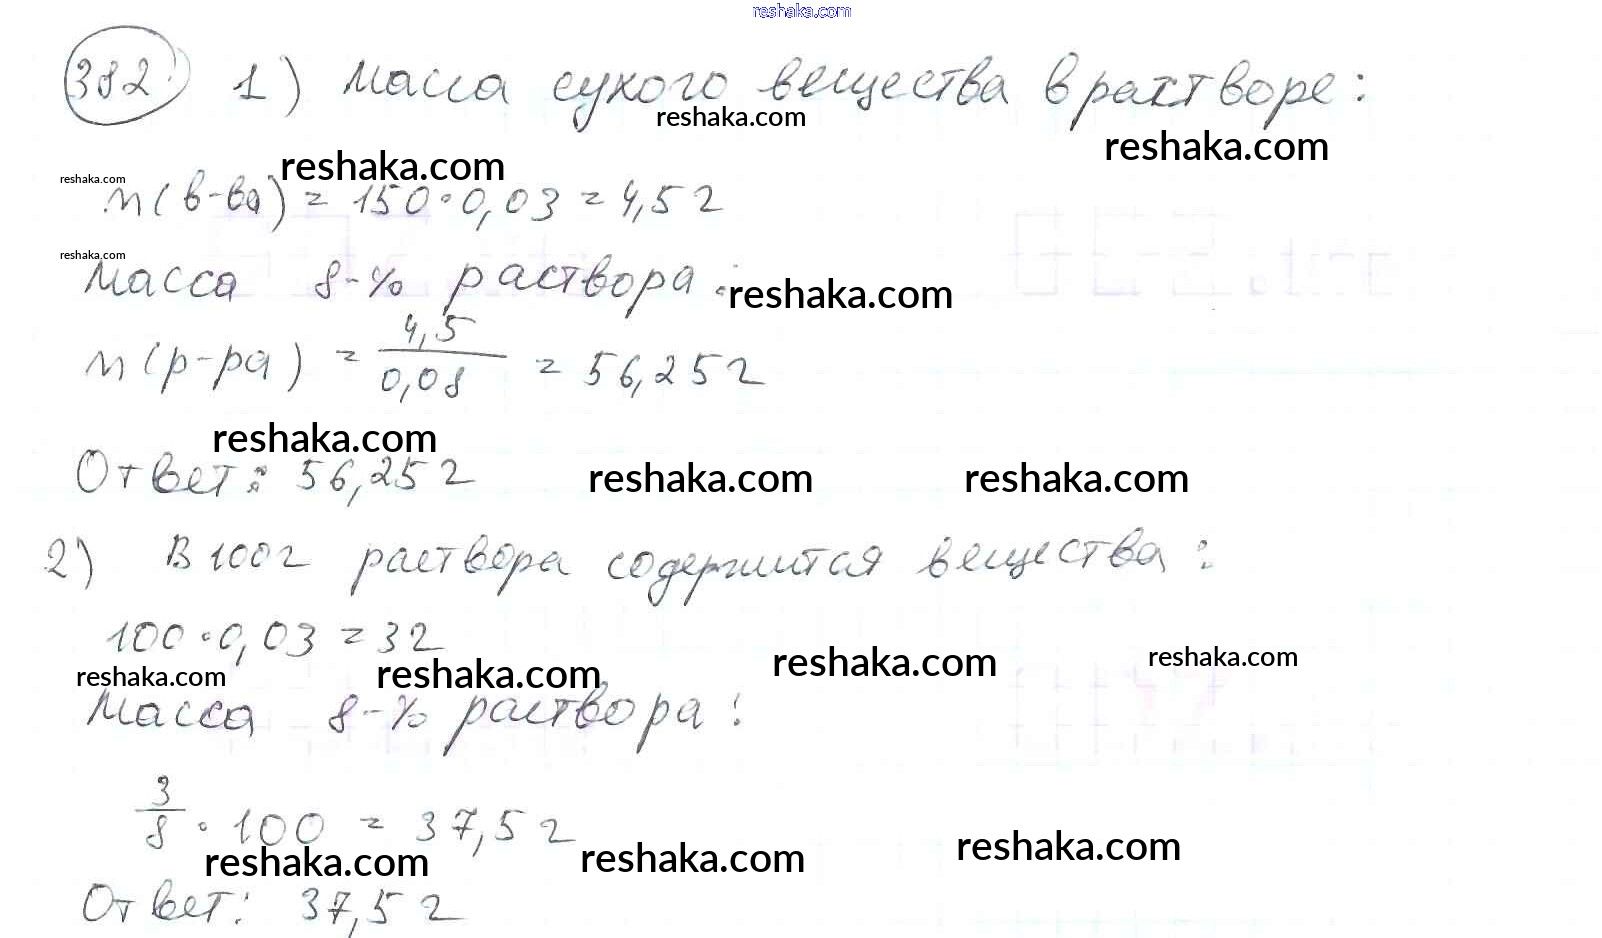 reshaka.com
382 1) Масса сухого вещества в растворе:
reshaka.com
reshaka.com
reshaka.com
reshaka.com
m(в-ва) = 150·0,03 = 4,5г
reshaka.com
Масса 8-% раствора:
reshaka.com
m(р-ра) = 4,5/0,08 = 56,25г
reshaka.com
Ответ: 56,25г
reshaka.com reshaka.com
2) В 100г раствора содержится вещества:
100·0,03 = 3г
reshaka.com reshaka.com reshaka.com reshaka.com
Масса 8-% раствора:
3/8 · 100 = 37,5г
reshaka.com reshaka.com reshaka.com
Ответ: 37,5г